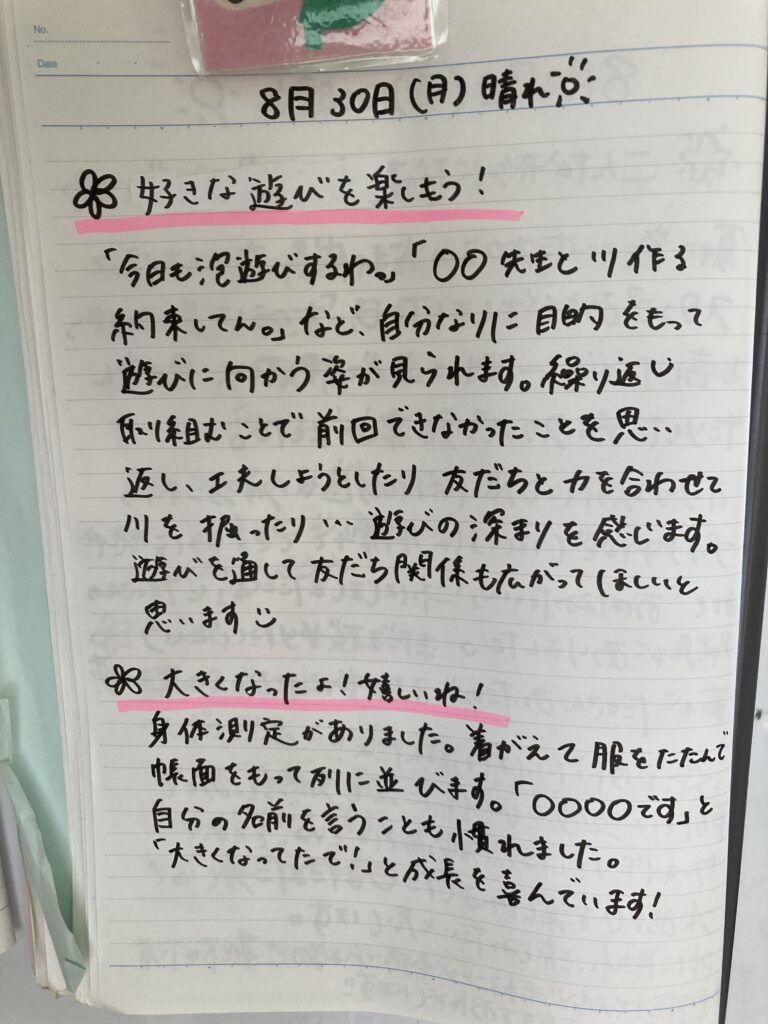 No.
Date
8月30日(月)晴れ
好きな遊びを楽しもう!
「今日も泡遊びするわ。」「〇〇先生と川作る
約束してん。」など、自分なりに目的をもって
遊びに向かう姿が見られます。繰り返し
取り組むことで前回できなかったことを思い
返し、工夫しようとしたり友だちと力を合わせて
川を掘ったり…遊びの深まりを感じます。
遊びを通して友だち関係も広がってほしいと
思います
大きくなったよ!嬉しいね!
身体測定がありました。着がえて服をたたんで
帳面をもって列に並びます。「〇〇〇〇です」と
自分の名前を言うことも慣れました。
「大きくなってたで!」と成長を喜んでいます!